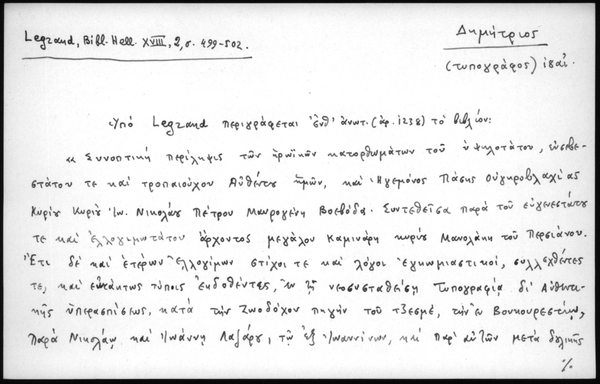 Legrand, Bibl. Hell. XVIII, 2, σ. 499-502.
Δημήτριος
(τυπογράφος) ἰδαί.
Ὑπὸ Legrand περιγράφεται ἐνθ' ἀνωτ. (ἀρ. 1238) τὸ βιβλίον:
« Συνοπτικὴ περίληψις τῶν ἡρωϊκῶν κατορθωμάτων τοῦ ὑψηλοτάτου, εὐσεβε-
στάτου τε καὶ τροπαιούχου Αὐθέντου ἡμῶν, καὶ Ἡγεμόνος Πάσης Οὐγγροβλαχίας
Κυρίου Κυρίου Ἰω. Νικολάου Πέτρου Μαυρογένη Βοεβόδα. Συντεθεῖσα παρὰ τοῦ εὐγενεστάτου
τε καὶ ἐλλογιμωτάτου ἄρχοντος μεγάλου καμινάρη κυρίου Μανολάκη τοῦ Περσιάνου.
Ἔτι δὲ καὶ ἑτέρων ἐλλογίμων στίχοι τε καὶ λόγοι ἐγκωμιαστικοί, συλλεχθέντες
τε, καὶ εὐτάκτως τύποις ἐκδοθέντες, ἐν τῇ νεοσυσταθείσῃ Τυπογραφίᾳ δι' Αὐθεντι-
κῆς ὑπερασπίσεως, κατὰ τὴν Ζωοδόχον πηγὴν τοῦ τζεσμέ, τὴν ἐν Βουκουρεστίῳ,
Παρὰ Νικολάῳ καὶ Ἰωάννῃ Λαζάρου, τῷ ἐξ Ἰωαννίνων, καὶ παρ' αὐτῶν μετὰ
%